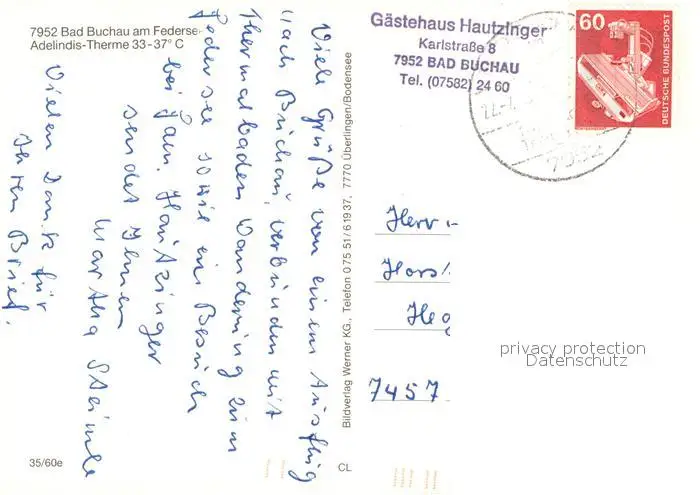 7952 Bad Buchau am Federse
Adelindis-Therme 33-37° C
Viele Grüße von einem Ausflug
nach Buchau, verbunden mit
Thermalbaden Wanderung zum
Federsee sowie ein Besuch
bei Fam. Hautzinger
sendet Ihnen
Martha Steimle
Vielen Dank für
Ihren Brief.
35/60e
Bildverlag Werner KG., Telefon 075 51/6 19 37, 7770 Überlingen/Bodensee
CL
Gästehaus Hautzinger
Karlstraße 8
7952 BAD BUCHAU
Tel. (07582) 24 60
60
DEUTSCHE BUNDESPOST
7952
Herr
Hors
Heg
7457
privacy protection
Datenschutz